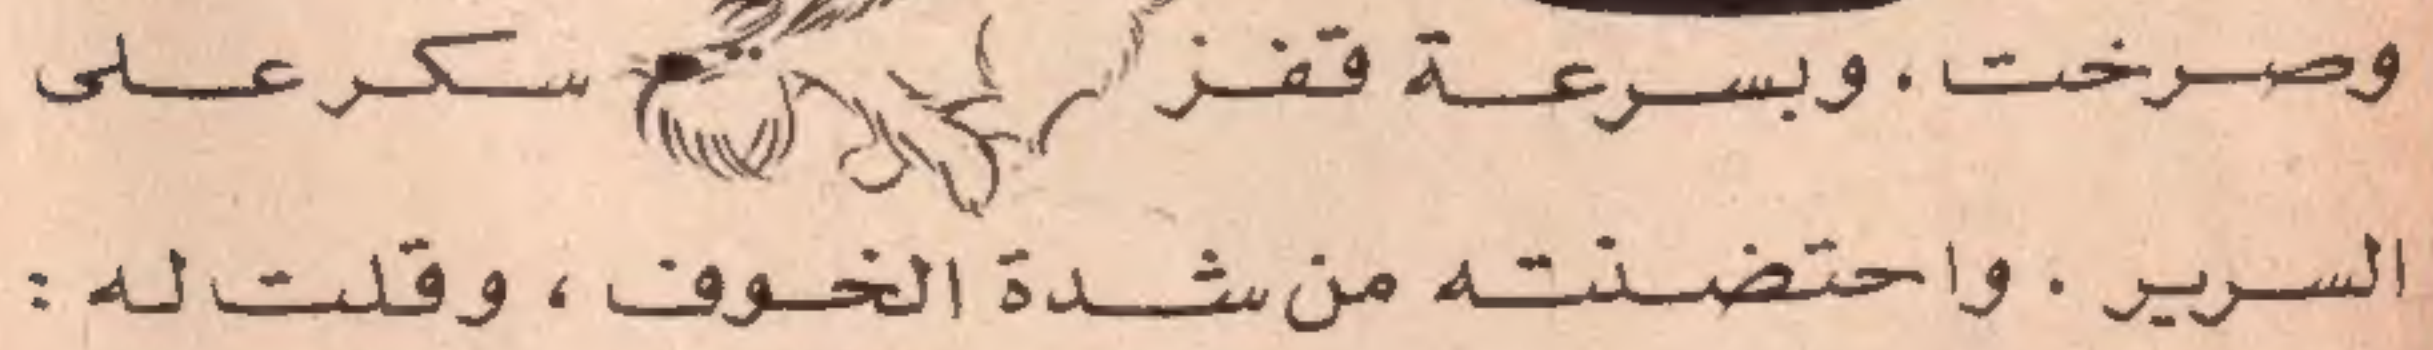 وصرخت . وبسرعة قفز سكر على
السرير . واحتضنته من شدة الخوف ، وقلت له :